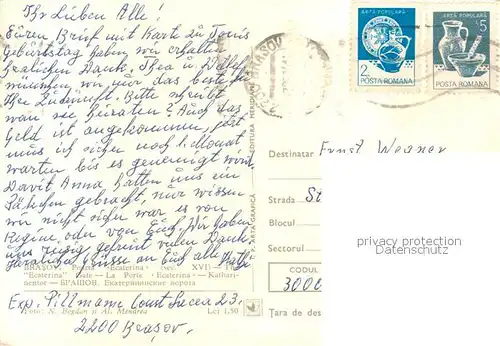 Ihr Lieben Alle!
Euren Brief mit Karte zu Tonis
Geburtstag haben wir erhalten
herzlichen Dank. Thea u
wünschen wir nur das beste für
ihre Zukunft. Bitte schreibt
wan sie heiraten? Auch das
Geld ist angekommen, jetzt
mus ich sicher noch 1 Monat
warten bis es genemigt wird.
Davit Anna hatten uns ein
Päkchen gebracht, nur wissen
wir nicht sicher war es von
Regine oder von Euch. Wir haben
uns riesig gefreut vielen Dank.
Grüsse an Euch alle
BRAȘOV. Poarta "Ecaterina" (sec. XVI) — The
"Ecaterina" Gate — La Porte « Ecaterina » — Kathari-
nentor — БРАШОВ. Екатерининские ворота
Exp. Pillmann Const Lucea 23,
Foto: N. Bogdan și Al. Mendrea
Lei 1,50
2200 Brașov.
EDITURA
ARTA GRAFICĂ
BRAȘOV
ARTĂ POPULARĂ
2L
POSTA ROMANA
ARTĂ POPULARĂ
5L
POSTA ROMANA
Destinatar Ernst Wegner
Strada St
Blocul
Sectorul
CODUL
3000
Țara de des
privacy protection
Datenschutz